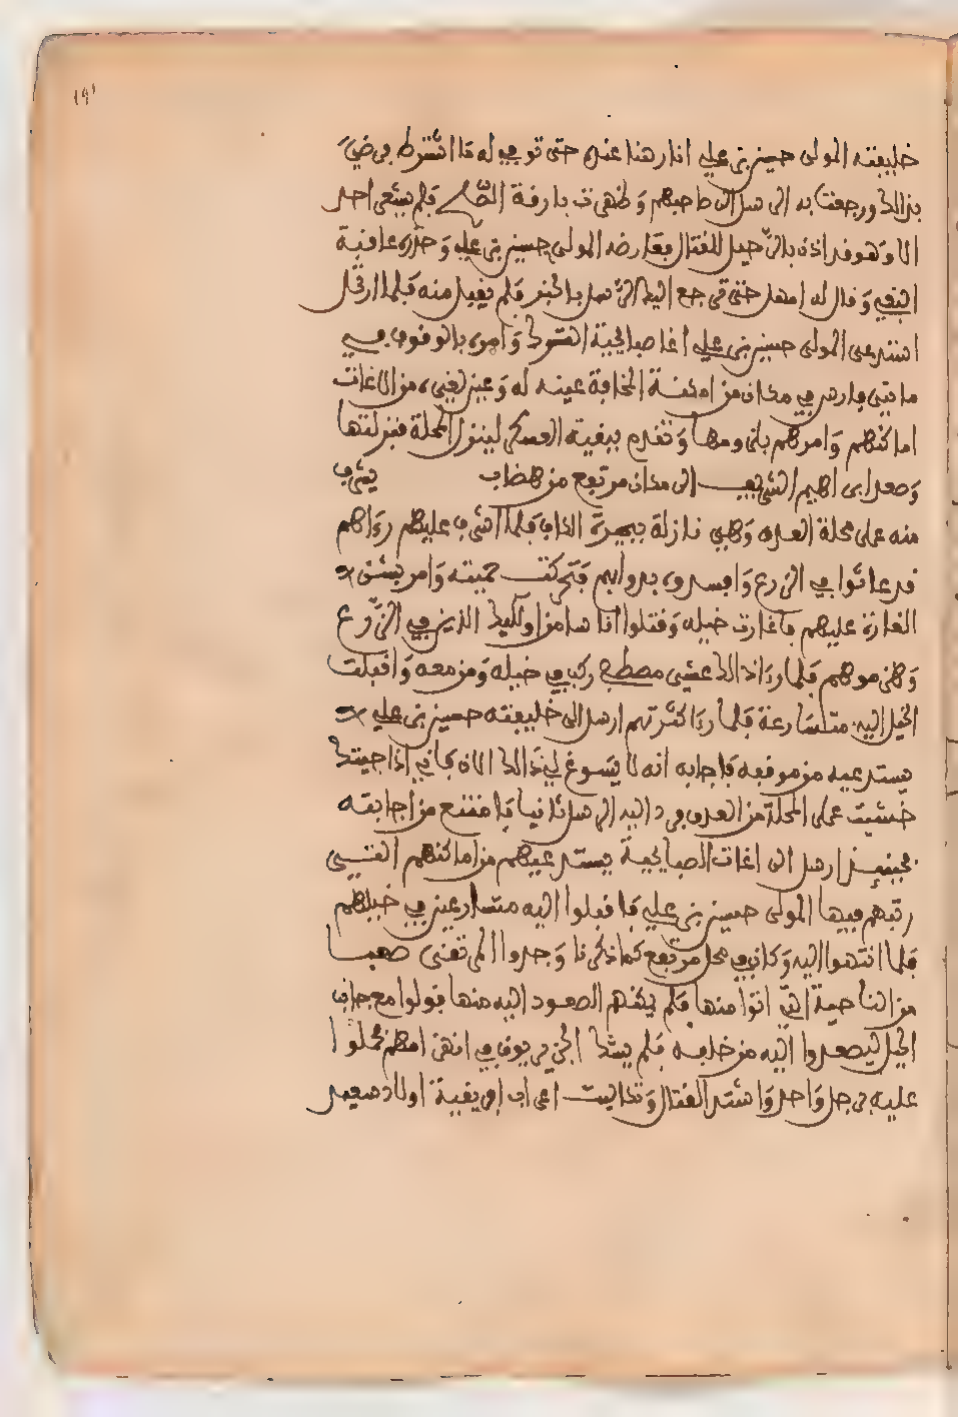 ١٩١
خليفته المولى حسين بن علي انا رهنا عنده حتى توفي له ما اشترط فرضي
بذالك ورجعت به الرسل الى صاحبهم وظهرت بارقة الصلح فلم يبق احد
الا وهو قد اذن بالرحيل للقتال فعارضه المولى حسين بن علي وحذره عاقبة
البغي وقال له امهل حتى ترجع اليك الرسل بالخبر فلم يقبل منه فلما ارتحل
استدعى المولى حسين بن علي اغا صبايحية الترك وامره بالوقوف في
مايتي فارس في مكان من امكنة المخافة عينه له وعين لغيره من الاغات
اماكنهم وامرهم بلزومها وتقدم ببقية العسكر لينزل المحلة منزلتها
وصعد ابراهيم الشريف الى مكان مرتفع من هضاب يشرف
منه على محلة العدو وهي نازلة ببحيرة الكاف فلما اشرف عليهم رءاهم
قد عاثوا في الزرع وافسدوه بدوابهم فتحركت حميته وامر بشن
الغارة عليهم فاغارت خيله وقتلوا اناسا من اولئك الذين في الزرع
وهزموهم فلما رءا ذالك عشي مصطفى ركب في خيله ومن معه واقبلت
الخيل اليه متسارعة فلما رءا كثرتهم ارسل الى خليفته حسين بن علي
يستدعيه من موقفه فاجابه انه لا يسوغ لي ذالك الان فاني اذا جيتك
خشيت على المحلة من العدو فرد اليه الرسل ثانيا فامتنع من اجابته
فحينئذ ارسل الى اغات الصبايحية يستدعيهم من اماكنهم التي
رتبهم فيها المولى حسين بن علي فاقبلوا اليه متسارعين في خيلهم
فلما انتهوا اليه وكان في محل مرتفع كما ذكرنا وجدوا المرتقى صعبا
من الناحية التي اتوا منها فلم يمكنهم الصعود اليه منها فولوا مع جانب
الجبل ليصعدوا اليه من خلفه فلم يشك الجزيريون في انهزامهم فحملوا
عليه فرجل واحد واشتد القتال وتكالبت اعراب افريقية اولاد سعيد